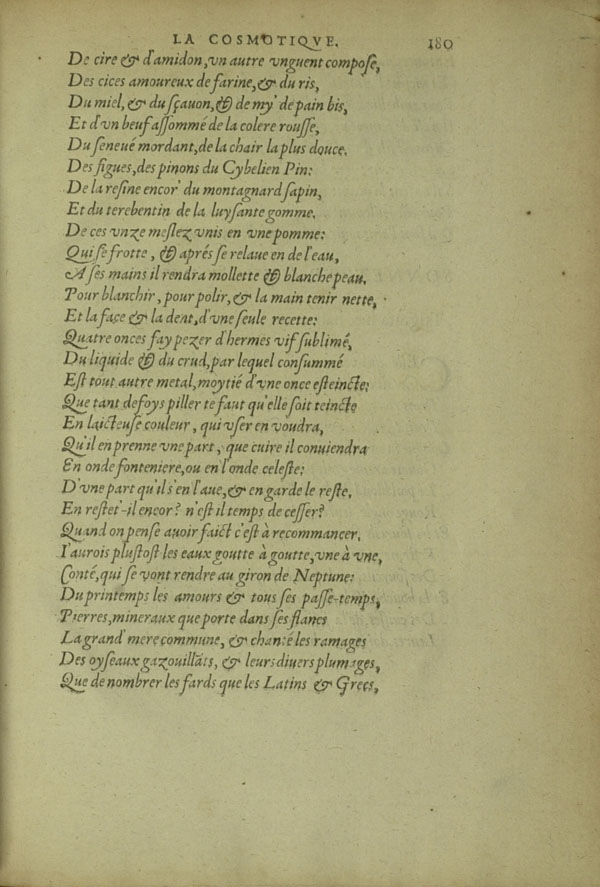 LA COSMOTIQVE. 180
De cire & d'amidon, vn autre vnguent compose,
Des cices amoureux de farine, & du ris,
Du miel, & du sçauon, & de my' de pain bis,
Et d'vn beuf assommé de la colere rousse,
Du seneué mordant, de la chair la plus douce.
Des figues, des pinons du Cybelien Pin:
De la resine encor' du montagnard sapin,
Et du terebentin de la luysante gomme.
De ces vnze meslez vnis en vne pomme:
Qui se frotte, & aprés se relaue en de l'eau,
A ses mains il rendra mollette & blanche peau.
Pour blanchir, pour polir, & la main tenir nette,
Et la face & la dent, d'vne seule recette:
Quatre onces fay pezer d'hermes vif sublimé,
Du liquide & du crud, par lequel consummé
Est tout autre metal, moytié d'vne once esteincte;
Que tant de foys piller te faut qu'elle soit teincte
En laicteuse couleur, qui vser en voudra,
Qu'il en prenne vne part, que cuire il conuiendra
En onde fonteniere, ou en l'onde celeste:
D'vne part qu'il s'en laue, & en garde le reste.
En reste t'-il encor? n'est il temps de cesser?
Quand on pense auoir faict c'est à recommancer.
I'aurois plustost les eaux goutte à goutte, vne à vne,
Conté, qui se vont rendre au giron de Neptune:
Du printemps les amours & tous ses passe-temps,
Pierres, mineraux que porte dans ses flancs
La grand' mere commune, & chanté les ramages
Des oyseaux gazouillãts, & leurs diuers plumages,
Que de nombrer les fards que les Latins & Grecs,